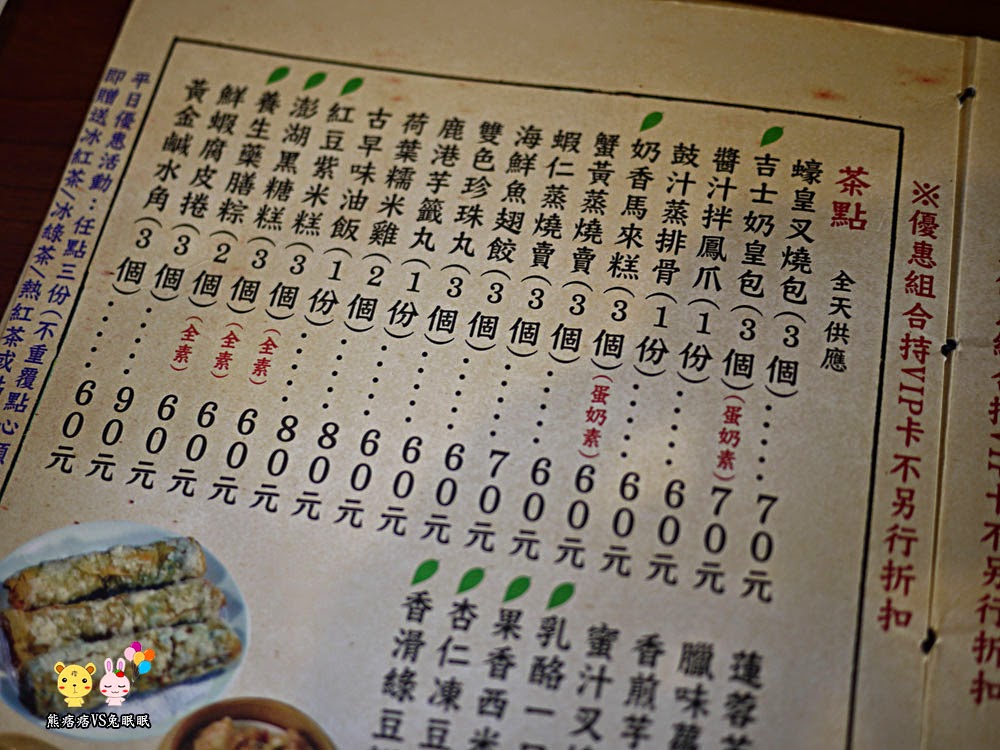 ※優惠組合持VIP卡不另行折扣
茶點 全天供應
蠔皇叉燒包(3個)……70元
吉士奶皇包(3個)(蛋奶素)70元
醬汁拌鳳爪(1份)……60元
鼓汁蒸排骨(1份)……60元
奶香馬來糕(3個)(蛋奶素)60元
蟹黃蒸燒賣(3個)……60元
蝦仁蒸燒賣(3個)……70元
海鮮魚翅餃(3個)……60元
雙色珍珠丸(3個)……60元
鹿港芋籤丸(1份)……60元
荷葉糯米雞(2個)……80元
古早味油飯(1份)……80元
紅豆紫米糕(3個)(全素)60元
澎湖黑糖糕(3個)(全素)60元
養生藥膳粽(2個)(全素)60元
鮮蝦腐皮捲(3個)……90元
黃金鹹水角(3個)……60元
平日優惠活動：任點三份(不重覆點心項
即贈送冰紅茶/冰綠茶/熱紅茶或
蓮蓉
臘味蘿
香煎芋
蜜汁叉
乳酪一
果香西米
杏仁凍豆
香滑綠豆
熊痞痞VS兔眠眠